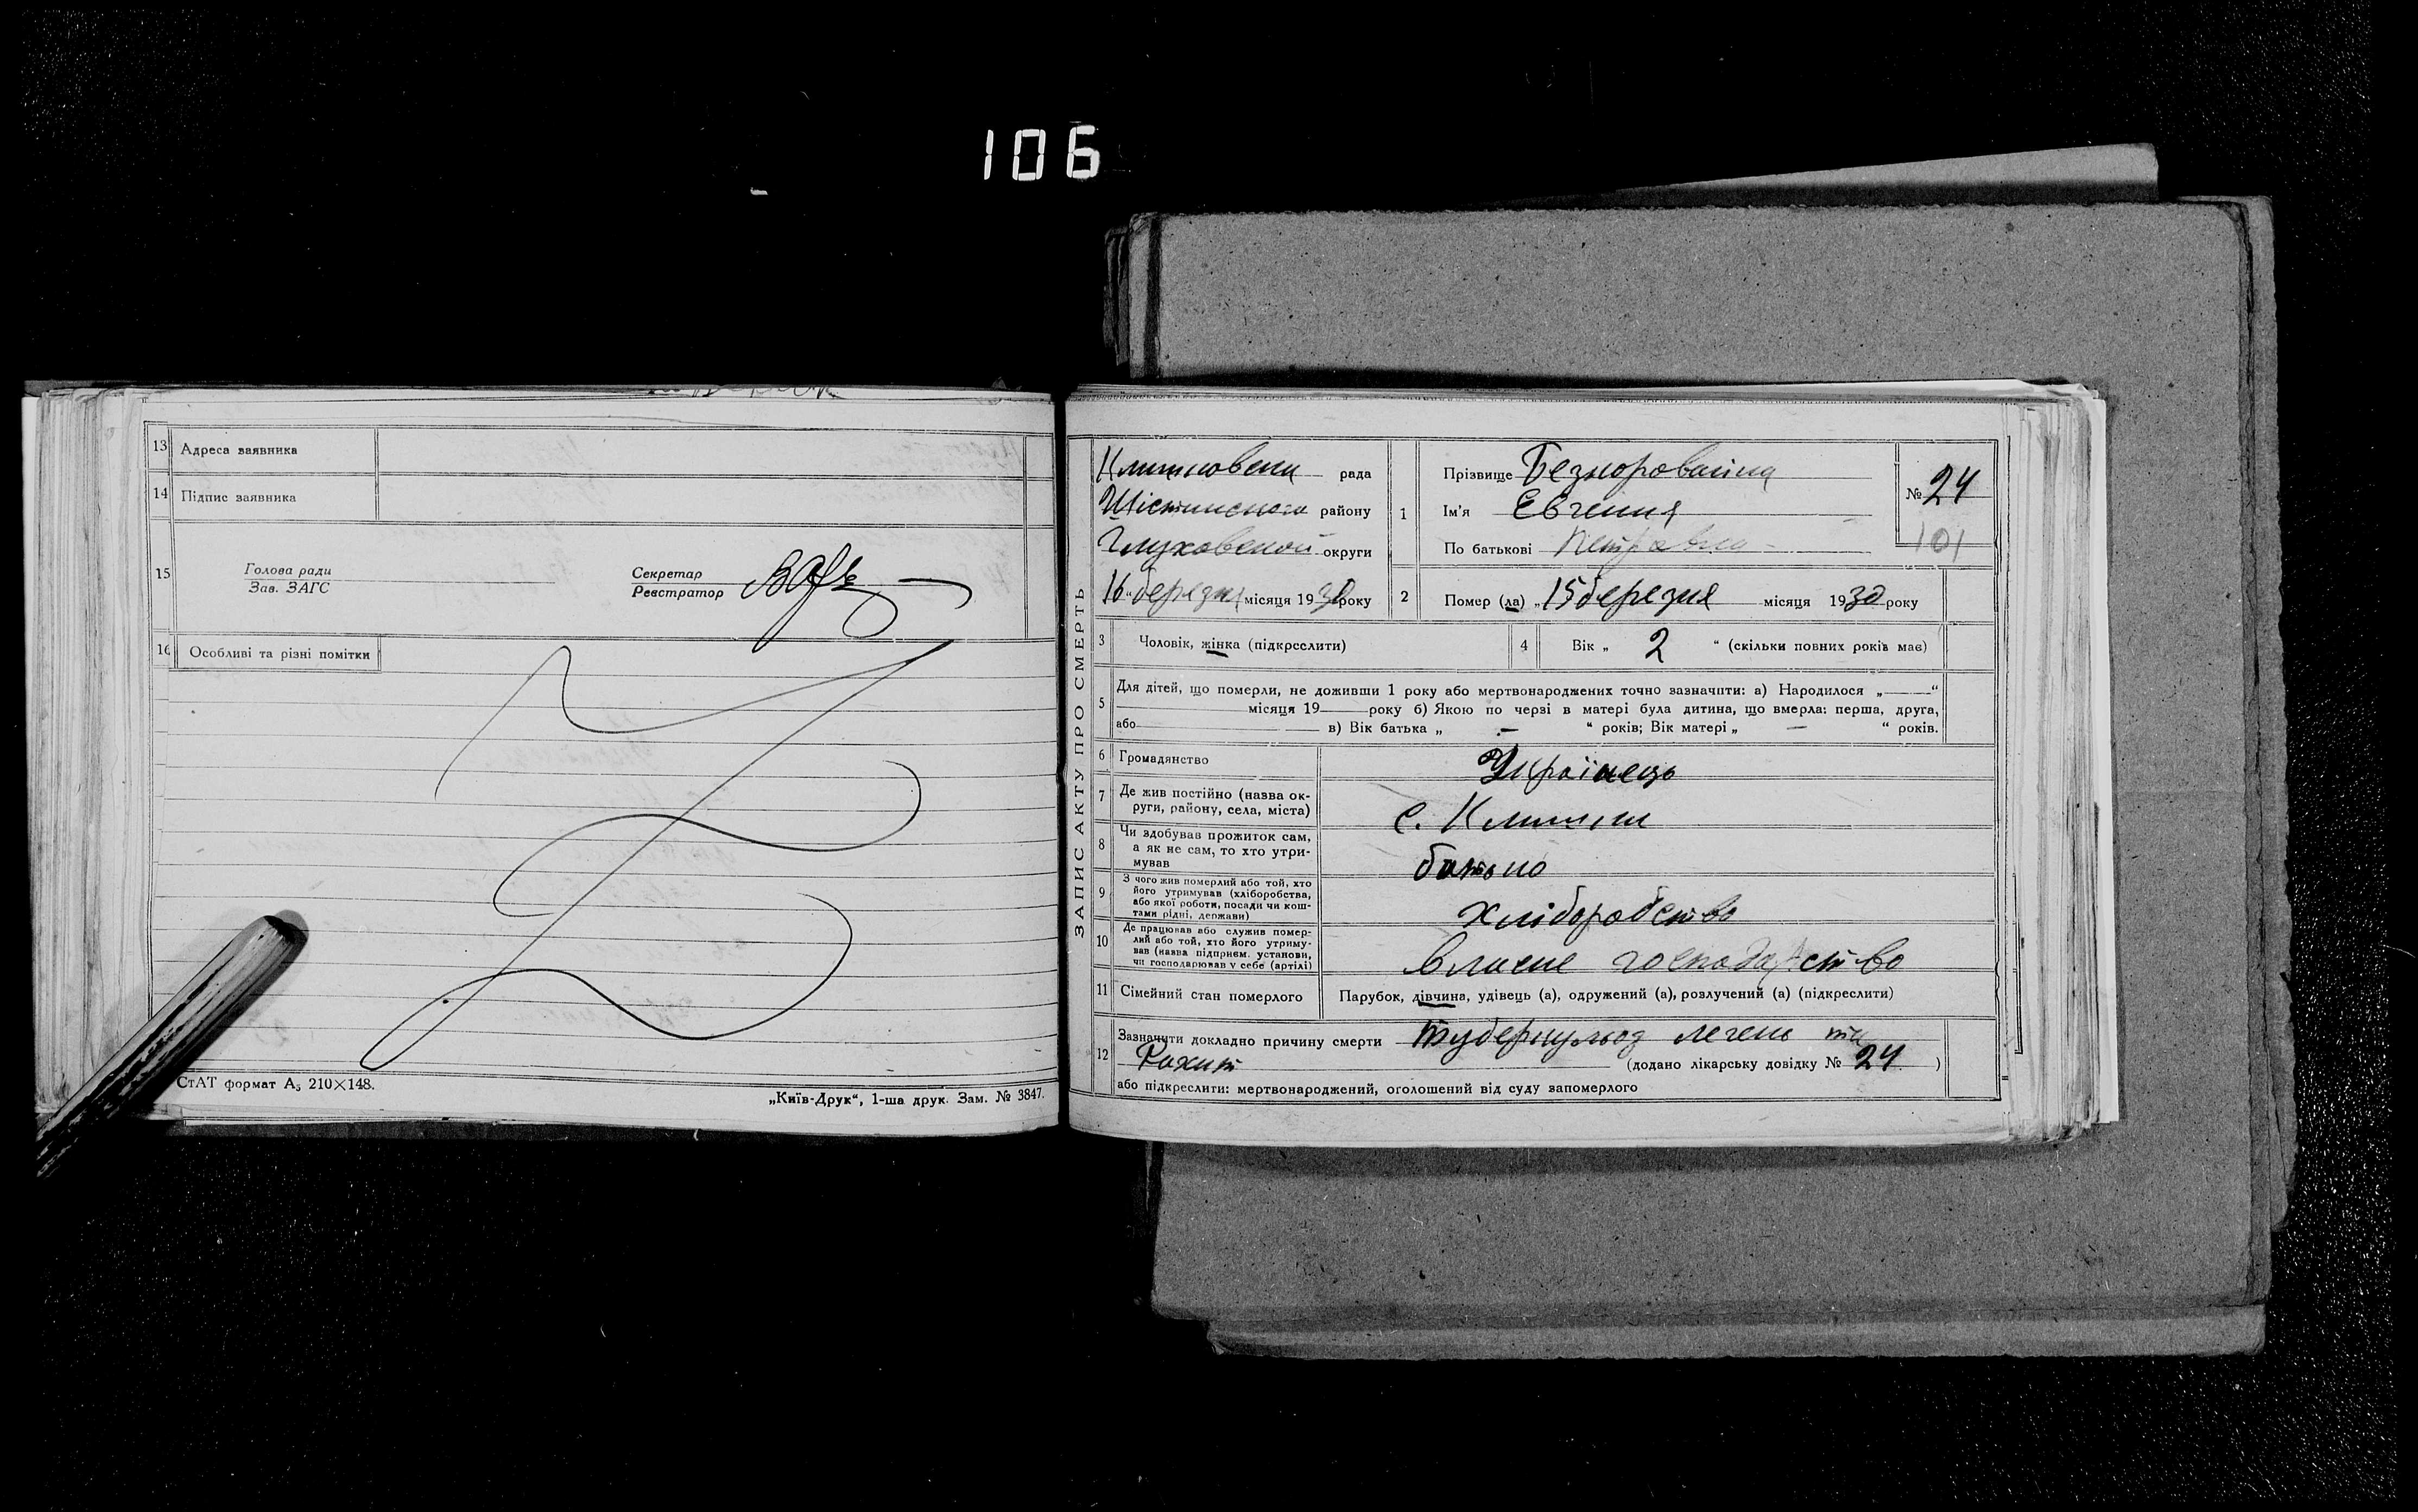 106
13 Адреса заявника
14 Підпис заявника
15 Голова ради
Зав. ЗАГС
Секретар
Реєстратор
16 Особливі та різні помітки
СтАТ формат А₅ 210×148.
„Київ-Друк“, 1-ша друк. Зам. № 3847.
ЗАПИС АКТУ ПРО СМЕРТЬ
рада
Шістинского району
Глуховской округи
16 „березня місяця 1930 року
1 Прізвище Безноровайна
Ім'я Євгенія
По батькові Петровна
№ 24
101
2 Помер (ла) „15 березня місяця 1930 року
3 Чоловік, жінка (підкреслити)
4 Вік „ 2 “ (скільки повних років має)
5 Для дітей, що померли, не доживши 1 року або мертвонароджених точно зазначити: а) Народилося „ — “
місяця 19 — року б) Якою по черзі в матері була дитина, що вмерла: перша, друга,
або в) Вік батька „ — “ років; Вік матері „ — “ років.
6 Громадянство Українець
7 Де жив постійно (назва ок-
руги, району, села, міста) с. Клишки
8 Чи здобував прожиток сам,
а як не сам, то хто утри-
мував батько
9 З чого жив померлий або той, хто
його утримував (хліборобства,
або якої роботи, посади чи кош-
тами рідні, держави) хліборобство
10 Де працював або служив помер-
лий або той, хто його утриму-
вав (назва підприєм. установи,
чи господарював у себе (артілі) власне господарство
11 Сімейний стан померлого Парубок, дівчина, удівець (а), одружений (а), розлучений (а) (підкреслити)
12 Зазначити докладно причину смерти туберкульоз легень та
Рахит (додано лікарську довідку № 24 )
або підкреслити: мертвонароджений, оголошений від суду запомерлого